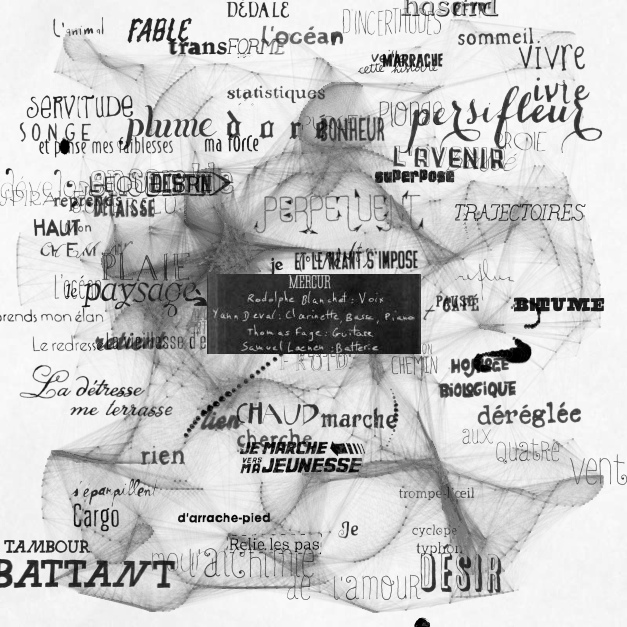 DEDALE
L'animal
FABLE
l'océan
transFORME
D'INCERTITUDES
hasard
sommeil.
vivre
M'ARRACHE
cette histoire
ivre
statistiques
SERVITUDE
SONGE
plume
d o r é
BONHEUR
PIONGE
persifleur
et panse mes faiblesses
ma force
L'AVENIR
superpose
DESTIN
reprends
DÉLAISSE
PERPÉTUENT
TRAJECTOIRES
HAUT
PLAIE
je
ET LE NÉANT S'IMPOSE
reflux
L'océan
paysage
MERCUR
Rodolphe Blanchet : Voix
Yann Deval : Clarinette, Basse, Piano
Thomas Fage : Guitare
Samuel Lachen : Batterie
BITUME
prends mon élan
Le redresse
FROID
CHEMIN
HORLOGE
BIOLOGIQUE
La détresse
me terrasse
lien
CHAUD
marche
déréglée
cherche
aux
Quatre
vent
rien
JE MARCHE
VERS
MA JEUNESSE
s'éparpillent
trompe-l'œil
Cargo
d'arrache-pied
Je
cyclope
typhon
TAMBOUR
BATTANT
Relie les pas
de l'amour
DESIR